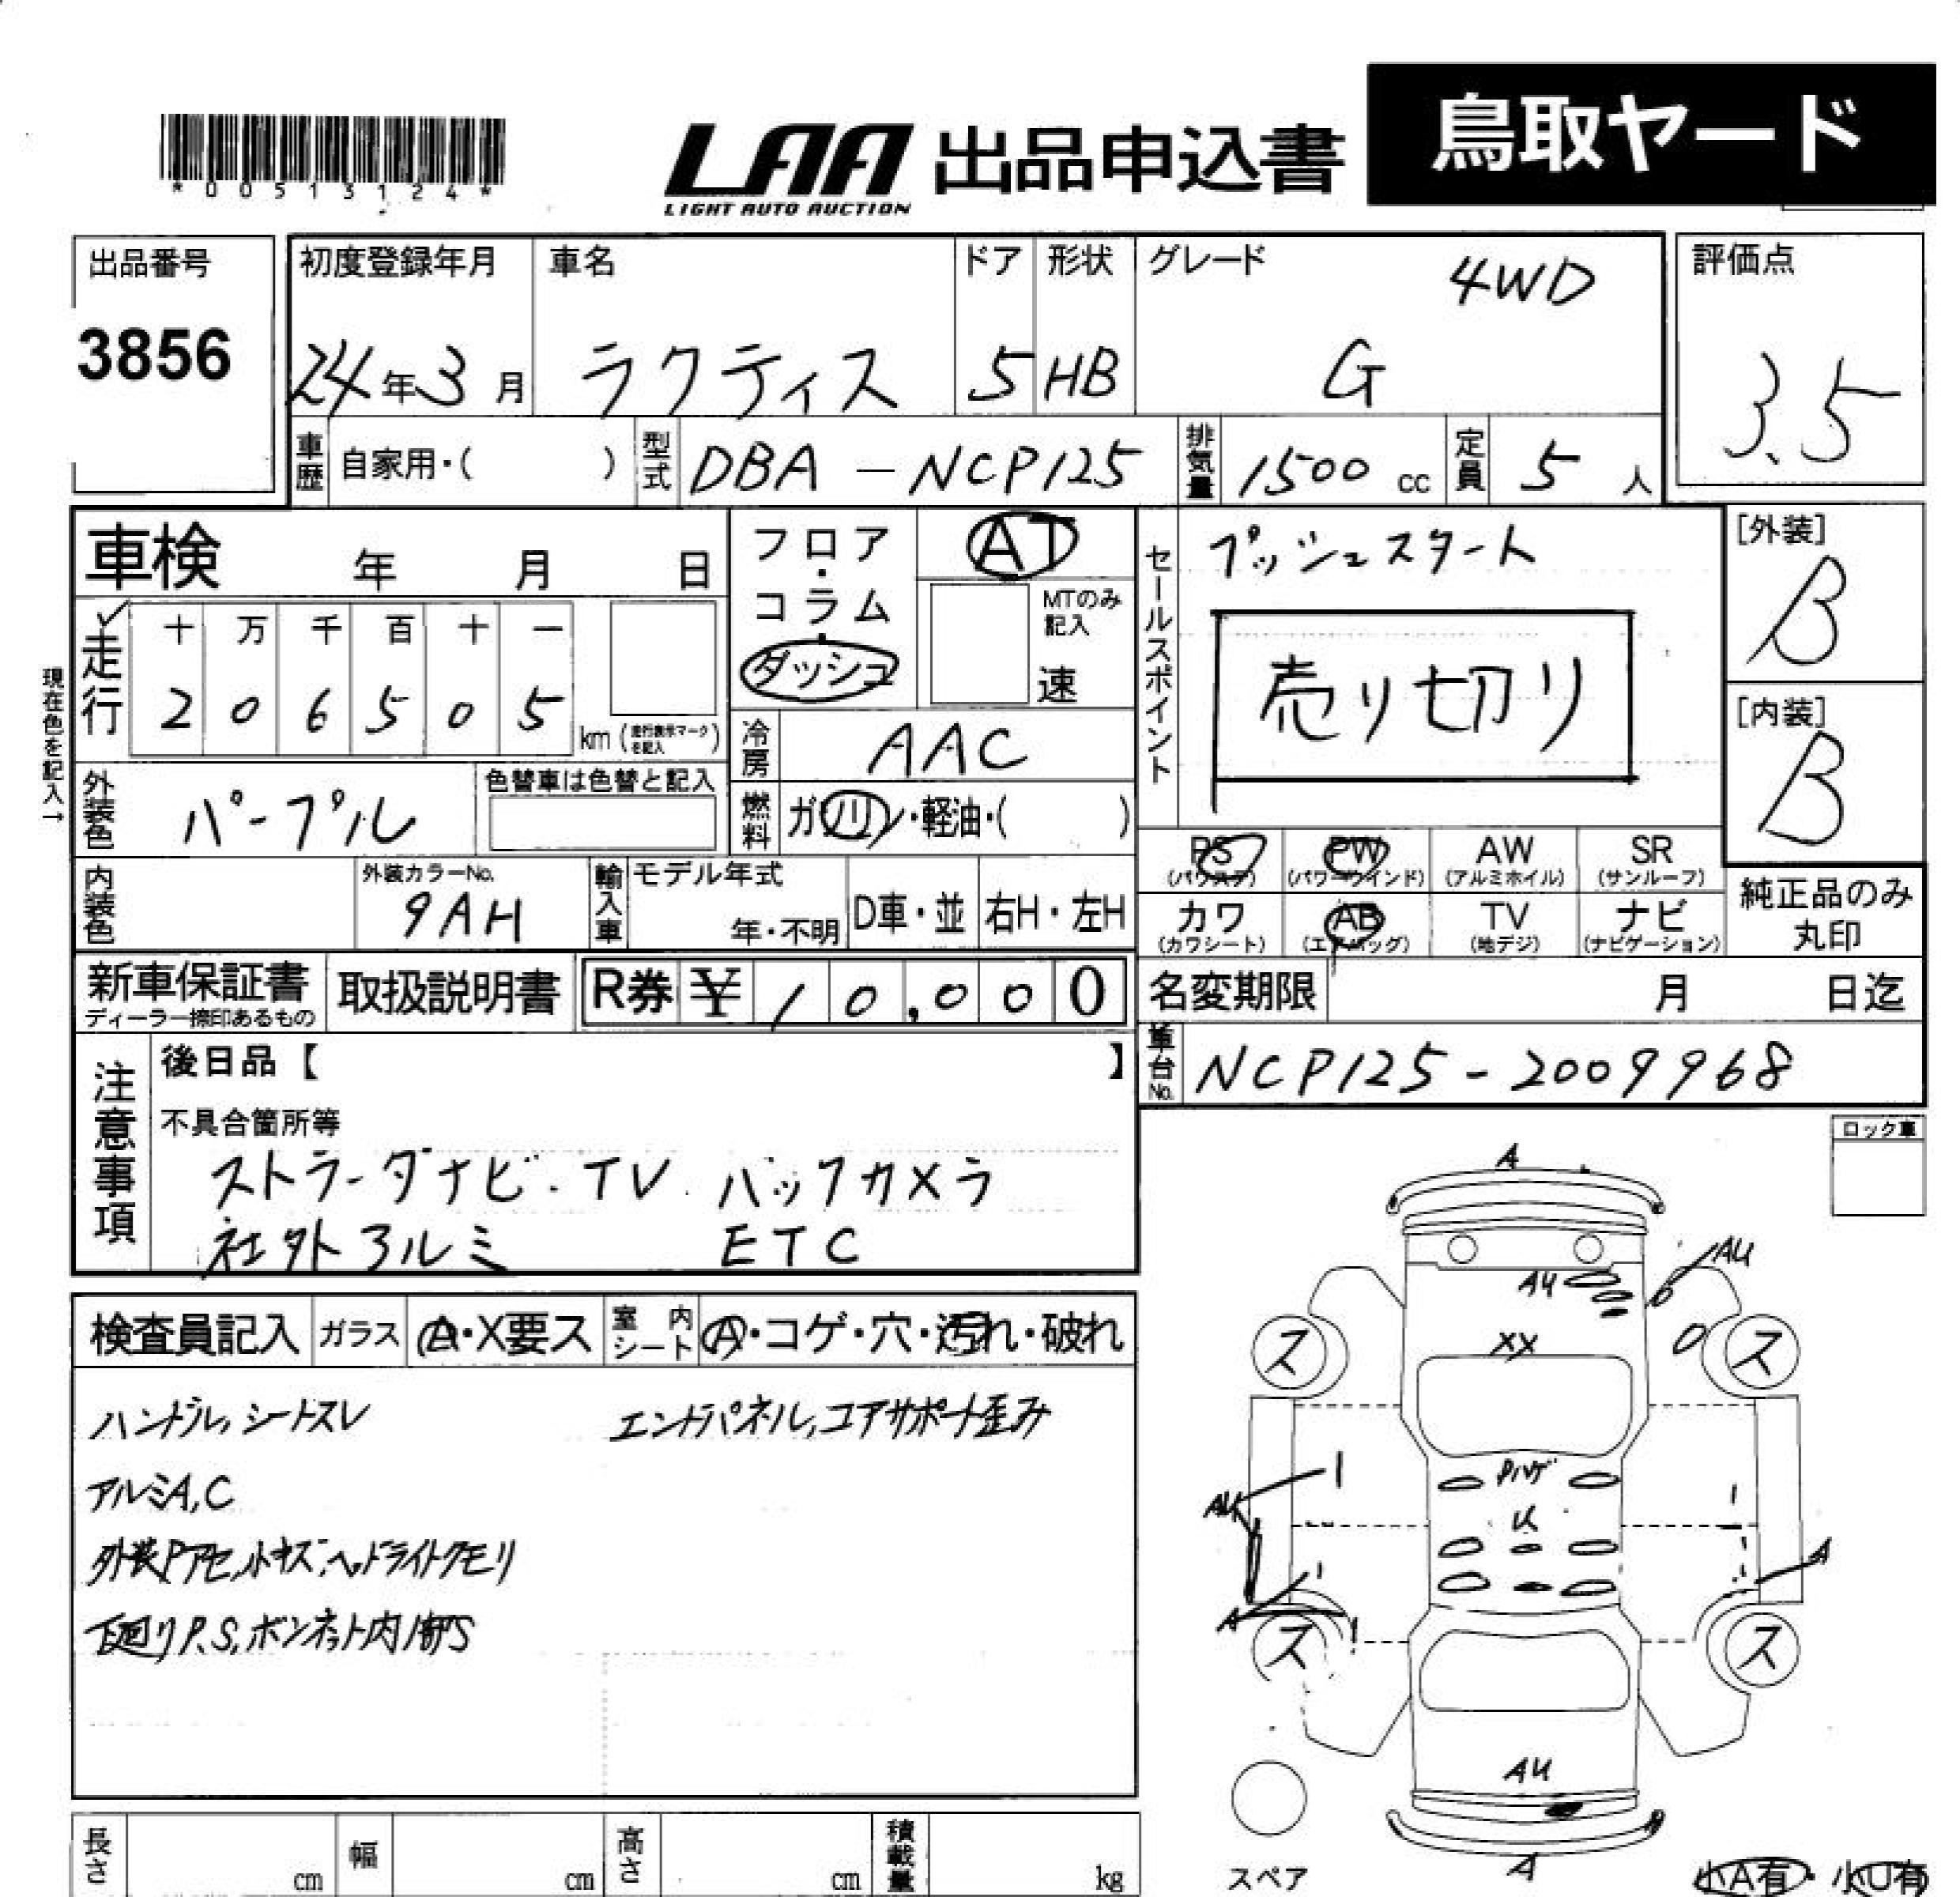 *00513124*
LAA
LIGHT AUTO AUCTION
出品申込書
鳥取ヤード
出品番号
3856
初度登録年月
24年3月
車名
ラクティス
ドア
5
形状
HB
グレード
4WD
G
評価点
3.5
車歴
自家用・( )
型式
DBA-NCP125
排気量
1500 cc
定員
5 人
車検 年 月 日
フロア・コラム・ダッシュ
AT
MTのみ記入
速
セールスポイント
プッシュスタート
売り切り
[外装]
B
[内装]
B
現在色を記入→
走行
十 万 千 百 十 一
2 0 6 5 0 5
km (走行表示マークを記入)
冷房
AAC
外装色
パープル
色替車は色替と記入
燃料
ガソリン・軽油・( )
PS (パワステ)
PW (パワーウインド)
AW (アルミホイル)
SR (サンルーフ)
内装色
外装カラーNo.
9AH
輸入車
モデル年式
年・不明
D車・並
右H・左H
カワ (カワシート)
AB (エアバッグ)
TV (地デジ)
ナビ (ナビゲーション)
純正品のみ
丸印
新車保証書
ディーラー捺印あるもの
取扱説明書
R券 ¥ 10,000
名変期限 月 日迄
車台No.
NCP125-2009968
注意事項
後日品【 】
不具合箇所等
ストラーダナビ・TV バックカメラ
社外アルミ ETC
ロック車
検査員記入
ガラス
A・X要ス
室内シート
A・コゲ・穴・汚れ・破れ
ハンドル,シートスレ
エンドパネル,コアサポート歪み
アルミA,C
外装Pアセ,小キズ,ヘッドライトクモリ
下廻りP.S,ボンネット内部S
A
AU
AU
XX
ス
ス
Pハゲ
U
AU
A
A
ス
ス
AU
A
スペア
小A有・小U有
長さ cm
幅 cm
高さ cm
積載量 kg